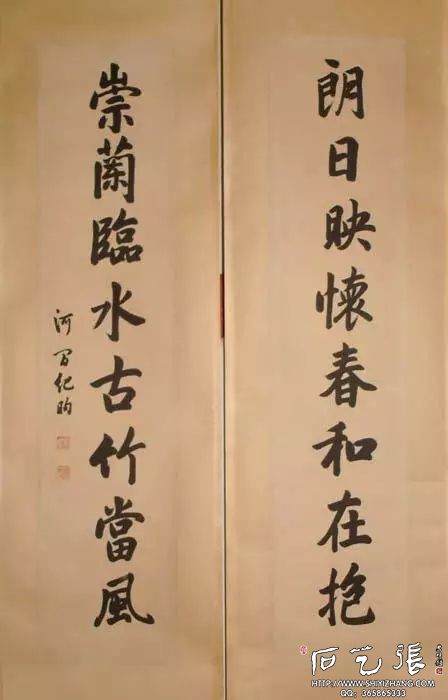 朗日映懷春和在抱
崇蘭臨水古竹當風
河間紀昀
石艺張
HTTP://WWW.SHIYIZHANG.COM
QQ: 365865333